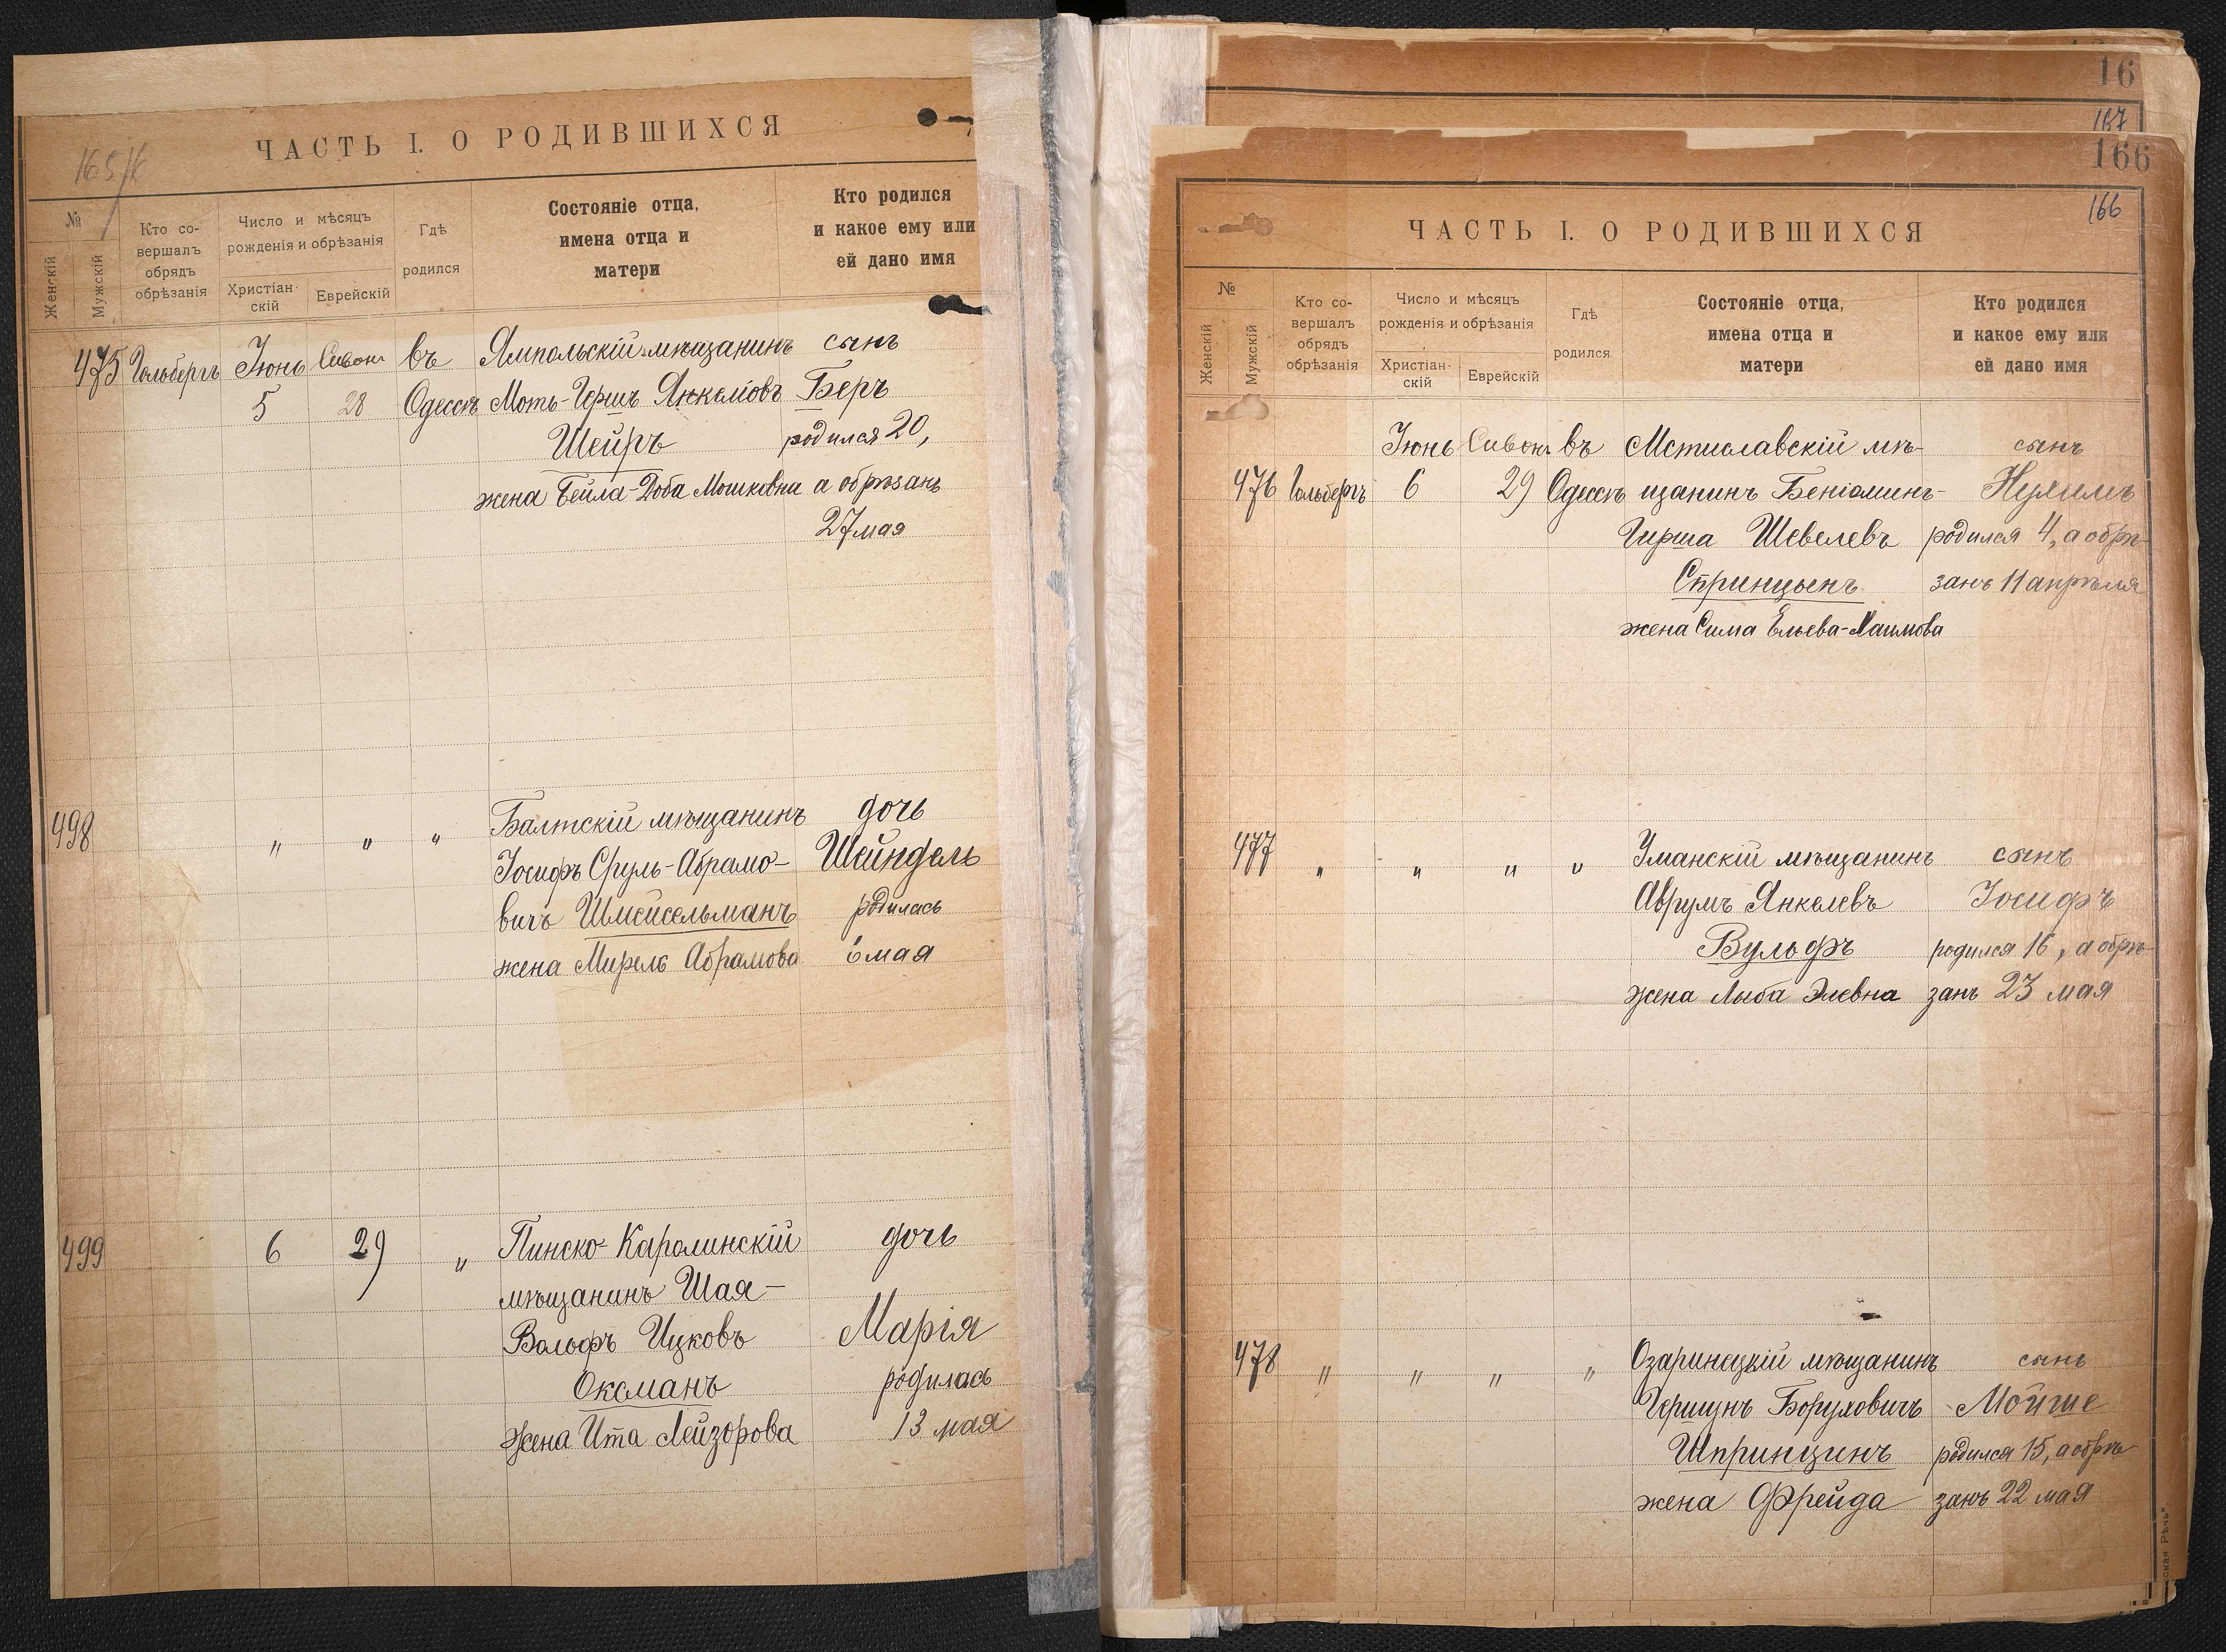 165/6
ЧАСТЬ I. О РОДИВШИХСЯ
№
Женскій
Мужскій
Кто со-
вершалъ
обрядъ
обрѣзанія
Число и мѣсяцъ
рожденія и обрѣзанія
Христіан-
скій
Еврейскій
Гдѣ
родился
Состояніе отца,
имена отца и
матери
Кто родился
и какое ему или
ей дано имя
475 Гольбергъ Іюнь Сивонъ въ Ямпольскій мѣщанинъ сынъ
5 28 Одессѣ Моть-Гершъ Янкелiовъ Беръ
Шейръ родился 20,
жена Бейла-Доба Мошковна а обрѣзанъ
27 мая
498 " " " Балтскій мѣщанинъ дочь
Іосифъ Сруль-Абрамо- Шейндель
вичъ Шмейсельманъ родилась
жена Мирель Абрамова 6 мая
499 6 29 " Пинско-Каролинскій дочь
мѣщанинъ Шая-
Вольфъ Ицковъ Марія
Оксманъ родилась
жена Ита Лейзорова 13 мая
16
167
166
166
ЧАСТЬ I. О РОДИВШИХСЯ
№
Женскій
Мужскій
Кто со-
вершалъ
обрядъ
обрѣзанія
Число и мѣсяцъ
рожденія и обрѣзанія
Христіан-
скій
Еврейскій
Гдѣ
родился
Состояніе отца,
имена отца и
матери
Кто родился
и какое ему или
ей дано имя
Іюнь Сивонъ въ Мстиславскій мѣ- сынъ
476 Гольбергъ 6 29 Одессѣ щанинъ Беніоминъ- Нухимъ
Гирша Шевелевъ родился 4, а обрѣ-
Спринцынъ занъ 11 апрѣля
жена Сима Ельева-Хаимова
477 " " " " Уманскій мѣщанинъ сынъ
Аврумъ Янкелевъ Іосифъ
Вульфъ родился 16, а обрѣ-
жена Лыба Элевна занъ 23 мая
478 " " " " Озаринецкій мѣщанинъ сынъ
Гершунъ Боруховичъ Мойше
Шпринцинъ родился 15, а обрѣ-
жена Фрейда занъ 22 мая
ская Рѣчь".